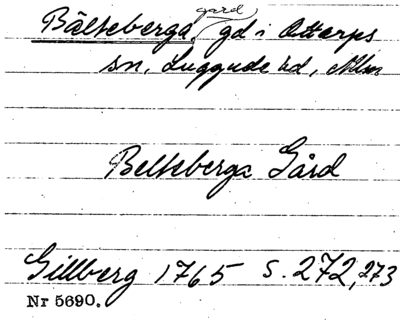 Bälteberga gård, gd i Ottarps
sn, Luggude hd, Mlm
Belteberga Gård
Gillberg 1765 s. 272, 273
Nr 5690.